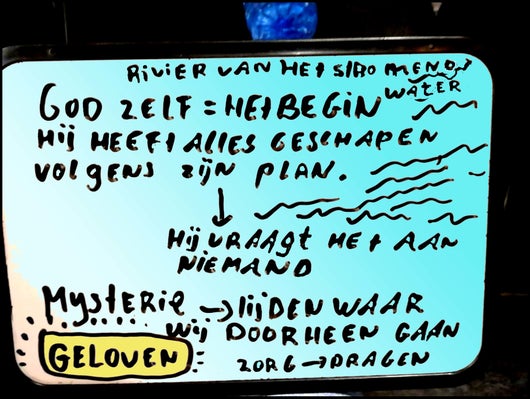 RIVIER VAN HET STROMEND
WATER
GOD ZELF = HET BEGIN
HIJ HEEFT ALLES GESCHAPEN
VOLGENS ZIJN PLAN.
↓
HIJ VRAAGT HET AAN
NIEMAND
MYSTERIE → LIJDEN WAAR
WIJ DOORHEEN GAAN
GELOVEN ZORG → DRAGEN